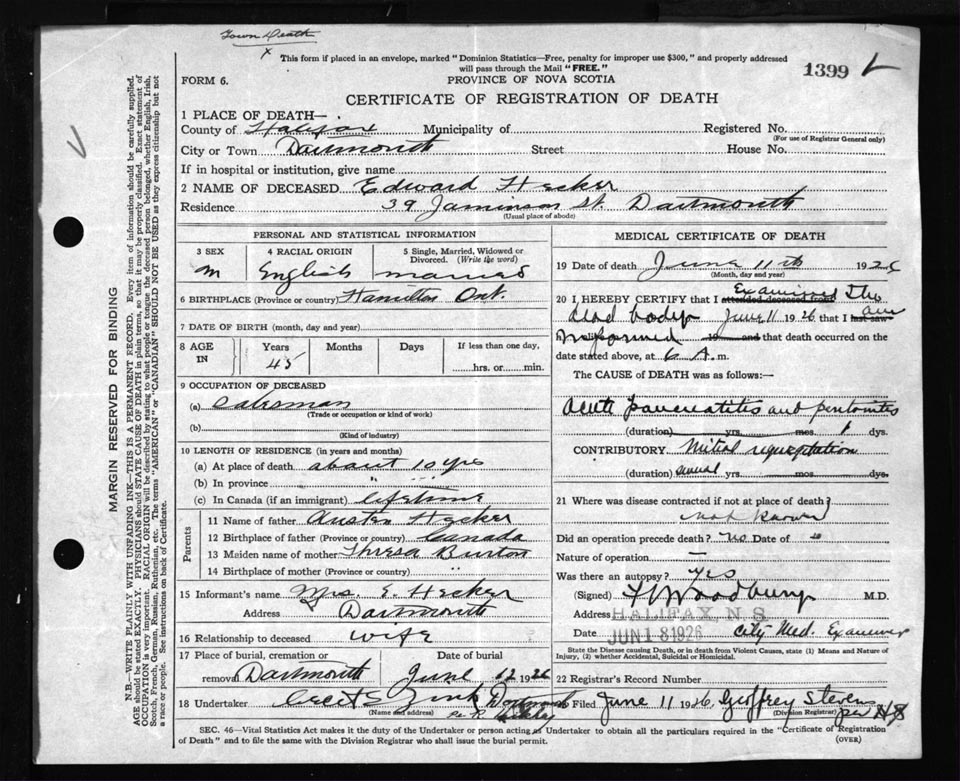 Town Death
x This form if placed in an envelope, marked "Dominion Statistics—Free, penalty for improper use $300," and properly addressed
will pass through the Mail "FREE."
1399
FORM 6.
PROVINCE OF NOVA SCOTIA
CERTIFICATE OF REGISTRATION OF DEATH
1 PLACE OF DEATH—
County of Halifax Municipality of Registered No.
(For use of Registrar General only)
City or Town Dartmouth Street House No.
If in hospital or institution, give name
2 NAME OF DECEASED Edward Hecker
Residence 39 Jamieson St. Dartmouth
(Usual place of abode)
PERSONAL AND STATISTICAL INFORMATION
3 SEX 4 RACIAL ORIGIN 5 Single, Married, Widowed or
Divorced. (Write the word)
M English married
6 BIRTHPLACE (Province or country) Hamilton Ont.
7 DATE OF BIRTH (month, day and year)
8 AGE IN Years Months Days If less than one day,
45 hrs. or min.
9 OCCUPATION OF DECEASED
(a) Salesman
(Trade or occupation or kind of work)
(b)
(Kind of industry)
10 LENGTH OF RESIDENCE (in years and months)
(a) At place of death about 10 yrs
(b) In province " "
(c) In Canada (if an immigrant) lifetime
Parents
11 Name of father Austen Hecker
12 Birthplace of father (Province or country) Canada
13 Maiden name of mother Thresa Burton
14 Birthplace of mother (Province or country) "
15 Informant's name Mrs. E. Hecker
Address Dartmouth
16 Relationship to deceased wife
17 Place of burial, cremation or Date of burial
removal Dartmouth June 12 1926
18 Undertaker Zink Dartmouth
(Name and address)
MEDICAL CERTIFICATE OF DEATH
19 Date of death June 11th 1926
(Month, day and year)
20 I HEREBY CERTIFY that I attended deceased from Examined the
dead body June 11 1926 that I last saw am
h informed 19 and that death occurred on the
date stated above, at 6 A. m.
The CAUSE of DEATH was as follows:
Acute Pancreatitis and peritonitis
(duration) yrs. mos. 1 dys.
CONTRIBUTORY Mitral regurgitation
(duration) several yrs. mos. dys.
21 Where was disease contracted if not at place of death
not known
Did an operation precede death? No Date of
Nature of operation —
Was there an autopsy? yes
(Signed) Woodbury M.D.
Address HALIFAX, N.S.
Date JUN 18 1926 City Med. Examiner
State the Disease causing Death, or in death from Violent Causes, state (1) Means and Nature of
Injury, (2) whether Accidental, Suicidal or Homicidal.
22 Registrar's Record Number
Filed June 11 1926 Geoffrey
(Division Registrar)
SEC. 46—Vital Statistics Act makes it the duty of the Undertaker or person acting as Undertaker to obtain all the particulars required in the "Certificate of Registration
of Death" and to file the same with the Division Registrar who shall issue the burial permit.
(OVER)
MARGIN RESERVED FOR BINDING
N.B.—WRITE PLAINLY WITH UNFADING INK—THIS IS A PERMANENT RECORD. Every item of information should be carefully supplied.
AGE should be stated EXACTLY. PHYSICIANS should STATE CAUSE OF DEATH in plain terms, so that it may be properly classified. Exact statement of
OCCUPATION is very important. RACIAL ORIGIN will be described by stating to what people or tongue the deceased person belonged, whether English, Irish,
Scotch, French, German, Russian, Ruthenian, etc. The terms "AMERICAN" or "CANADIAN" SHOULD NOT BE USED as they express citizenship but not
a race or people. See instructions on back of Certificate.